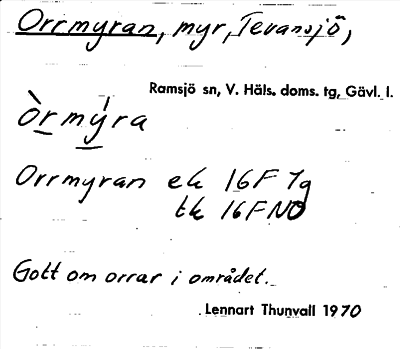 Orrmyran, myr, Tevansjö,
Ramsjö sn, V. Häls. doms. tg, Gävl. l.
òrmýra
Orrmyran ek 16F 7g
tk 16F NO
Gott om orrar i området.
Lennart Thunvall 1970